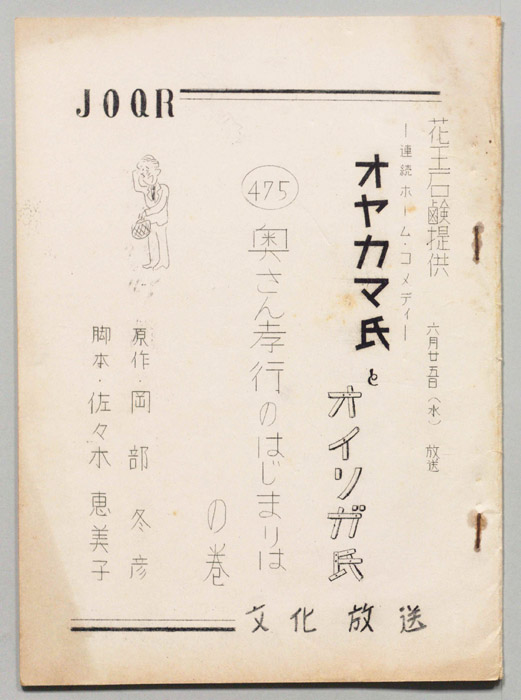 JOQR
花王石鹸提供
六月廿五日(水) 放送
―連続ホーム・コメディ―
オヤカマ氏と
オイソガ氏
475
奥さん孝行のはじまりは
の巻
原作・岡部冬彦
脚本・佐々木恵美子
文化放送